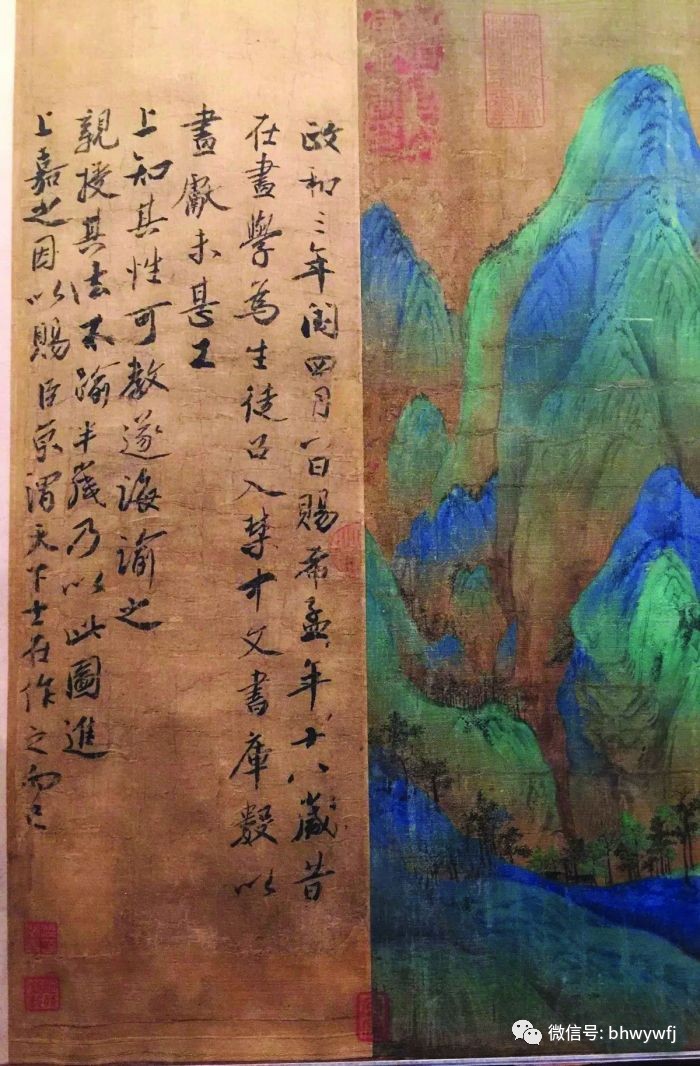 政和三年閏四月一日賜希孟年十八歲昔
在畫學為生徒召入禁中文書庫數以
畫獻未甚工
上知其性可教遂誨諭之
親授其法不踰半歲乃以此圖進
上嘉之因以賜臣京謂天下士在作之而已
微信号: bhwywfj